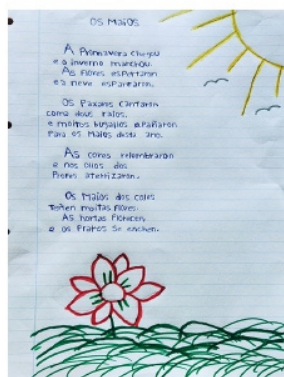 OS MAIOS
A Primavera chegou
e o inverno marchou.
As flores espertaron
e a neve espantaron.
Os Paxaros Cantaron
como dous raios.
e moitos bugallos apañaron
Para os Maios deste ano.
As cores relembraron
e nos ollos dos
Pícores aterrizaron.
Os Maios dos coles
Teñen moitas flores.
As hortas Florecen
e os Pratos se enchen.